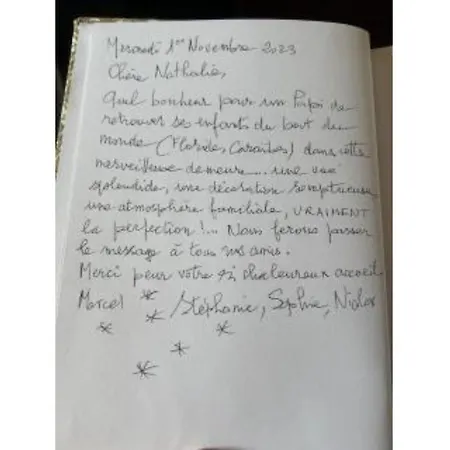 Mercredi 1er Novembre 2023
Chère Nathalie,
Quel bonheur pour un Papi de
retrouver ses enfants du bout du
monde (Floride, Caraïbes) dans cette
merveilleuse demeure.... une vue
splendide, une décoration somptueuse
une atmosphère familiale, VRAIMENT
la perfection !... Nous ferons passer
le message à tous nos amis.
Merci pour votre si chaleureux accueil
Marcel Stéphanie, Sophie,